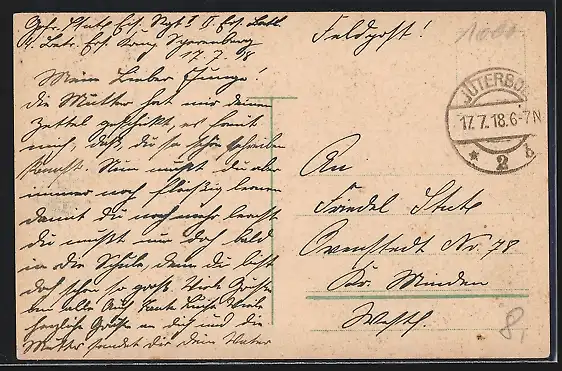 17.7.18
Mein lieber Junge!
die Mutter hat mir deinen
Zettel geschickt, es freut
mich, daß du so schön schreiben
kannst. Nun mußt du aber
immer noch fleißig lernen
damit du noch mehr lernst
du mußt nun doch bald
in die Schule, denn du bist
doch schon so groß. Viele Grüße
an alle Viele
herzliche Grüße an dich und die
Mutter sendet dir dein Vater
Feldpost!
JÜTERBOG
17.7.18.6-7N
* 2 b
An
Friedel
Ovenstedt Nr. 78
Kr. Minden
Westf.
8,